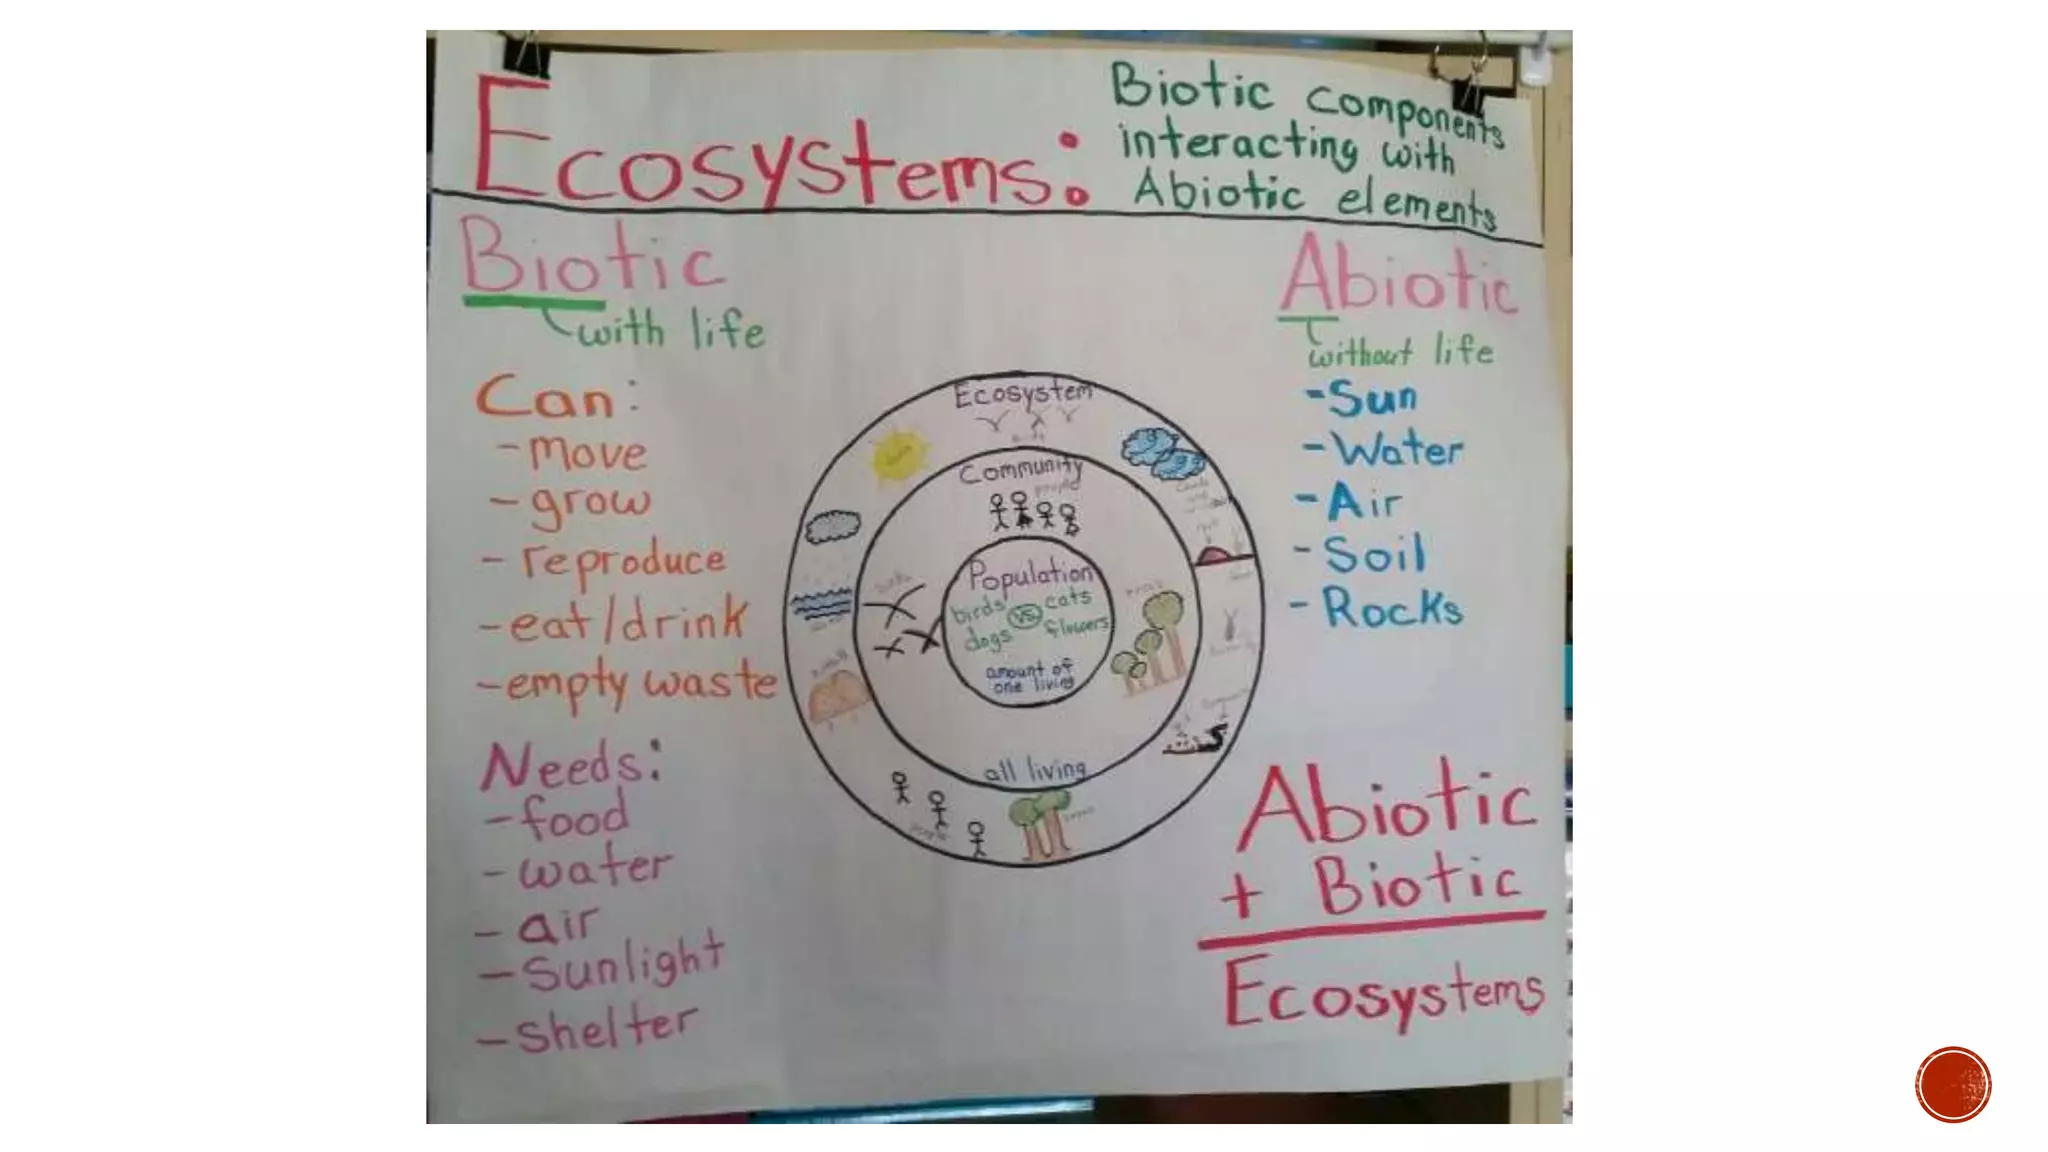 Ecosystems:
Biotic components
interacting with
Abiotic elements
Biotic
with life
Can:
- move
- grow
- reproduce
- eat/drink
- empty waste
Needs:
- food
- water
- air
- Sunlight
- Shelter
Ecosystem
Community
people
Population
birds vs. cats
dogs flowers
amount of
one living
all living
Abiotic
without life
- Sun
- Water
- Air
- Soil
- Rocks
Abiotic
+ Biotic
Ecosystems